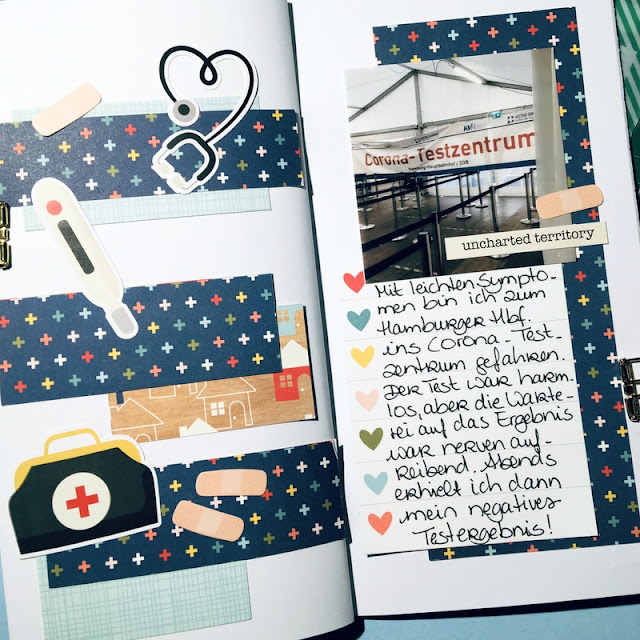 Corona-Testzentrum
Hamburg-Hauptbahnhof / ZOB
uncharted territory
Mit leichten Sympto-
men bin ich zum
Hamburger Hbf.
ins Corona-Test-
zentrum gefahren.
Der Test war harm-
los, aber die Warte-
rei auf das Ergebnis
war nerven auf-
reibend. Abends
erhielt ich dann
mein negatives
Testergebnis!